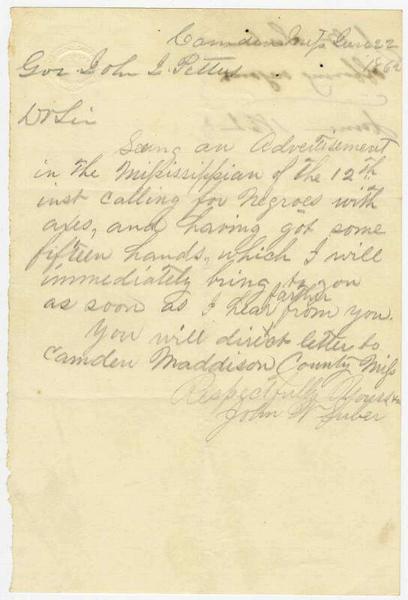 Camden Miss June 22
1862
Gov John J. Pettus
Dr Sir
Seing an Advertisement
in the Mississippian of the 12th
inst calling for Negroes with
axes, and having got some
fifteen hands, which I will
immediately bring to you
as soon as I hear farther from you.
You will direct letter to
Camden Maddison County Miss
Respectfully Yours
John W